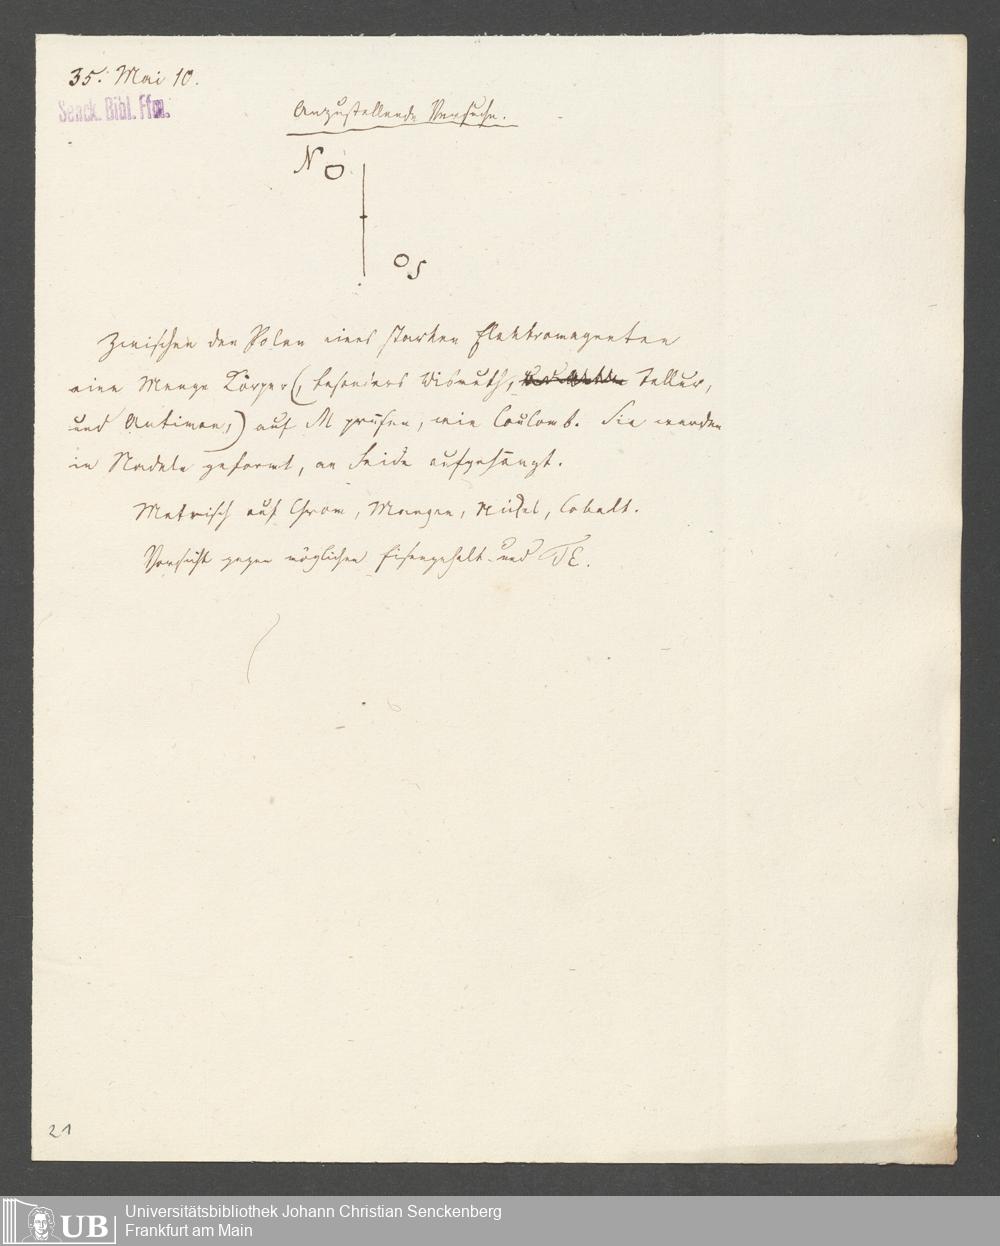 35. Mai 10.
Senck. Bibl. Ffm.
Anzustellende Versuche.
N
S
Zwischen den Polen eines starken Elektromagneten
eine Menge Körper (, besonders Wismuth, Tellur,
und Antimon,) auf M prüfen, wie Coulomb. Sie werden
in Nadeln geformt, an Seide aufgehängt.
auf Chrom, Mangan, Nickel, Cobalt.
Vorsicht gegen möglichen Eisengehalt und TE.
21
UB
Universitätsbibliothek Johann Christian Senckenberg
Frankfurt am Main